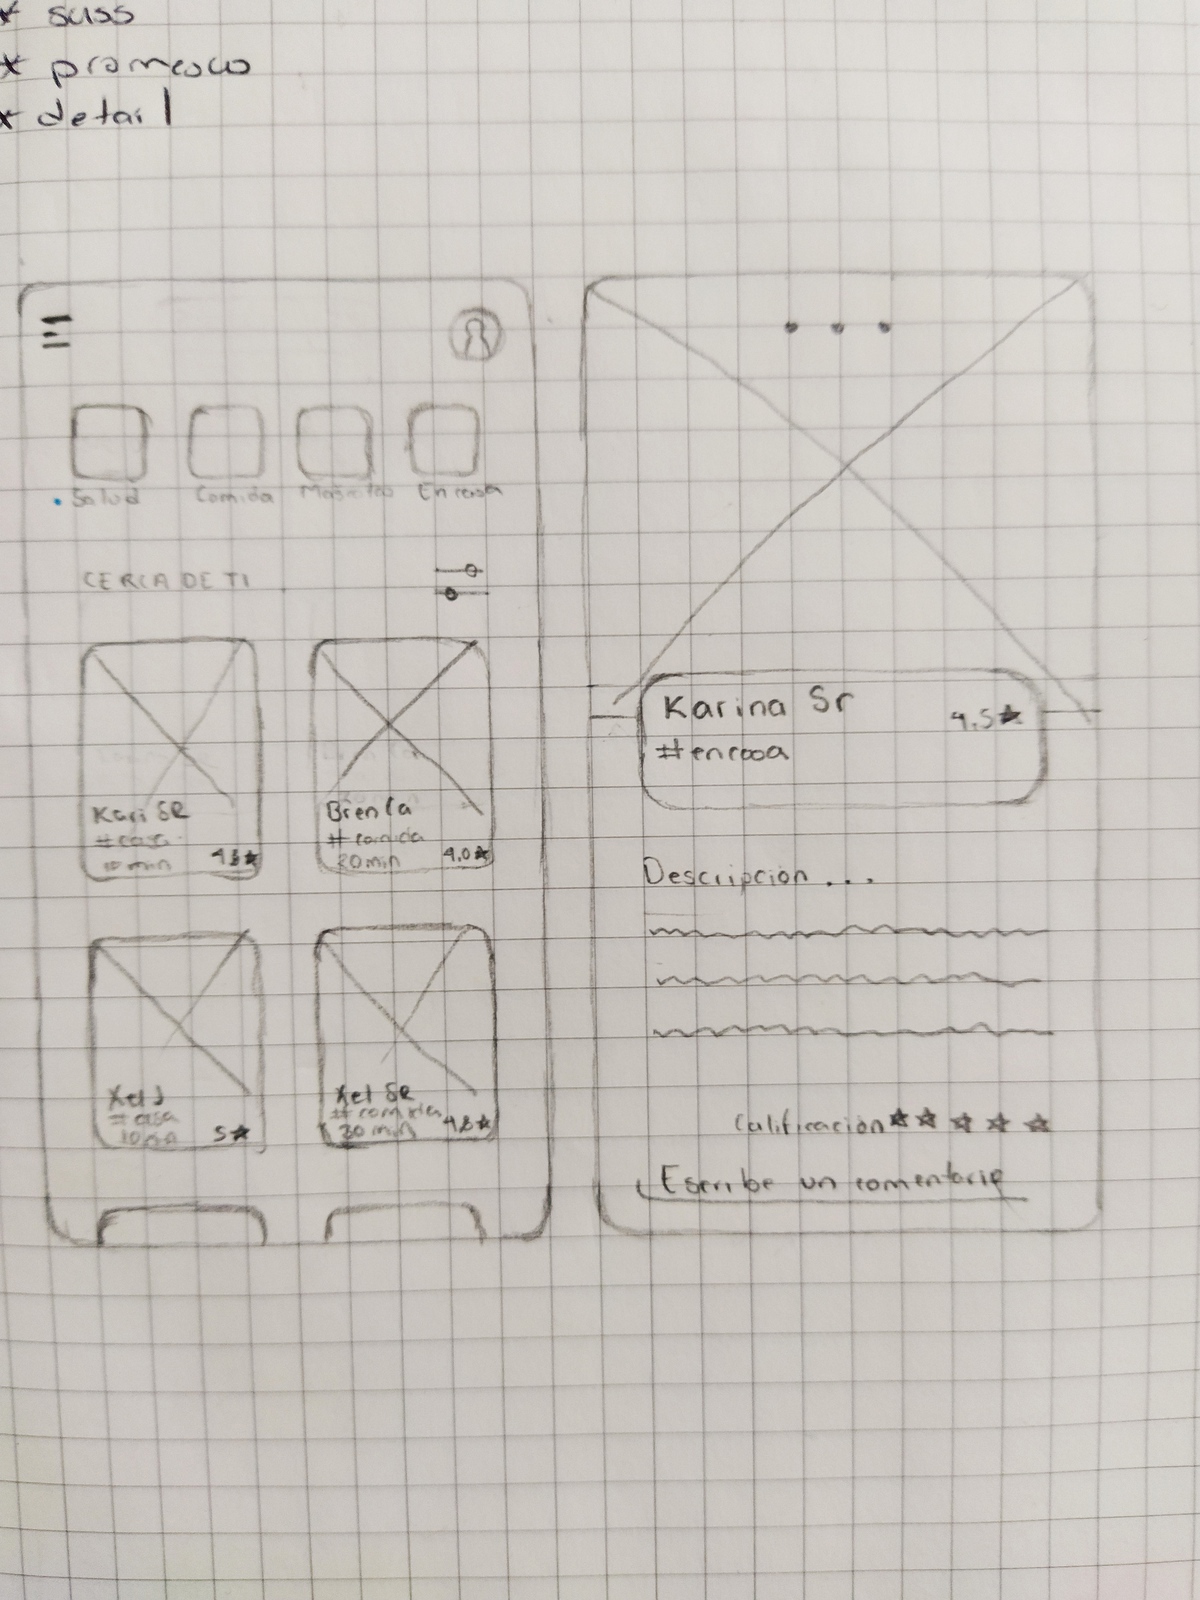 * sass
* promesas
* detail
Salud Comida Mascotas En casa
CERCA DE TI
Kari SR
#casa
10 min 4.8★
Brenla
#comida
20min 4.0★
Xel J
#casa
10min 5★
Xel SR
#comida
30 min 4.8★
Karina Sr
4.5★
#encasa
Descripción ...
Calificación ★★☆☆☆
Escribe un comentario